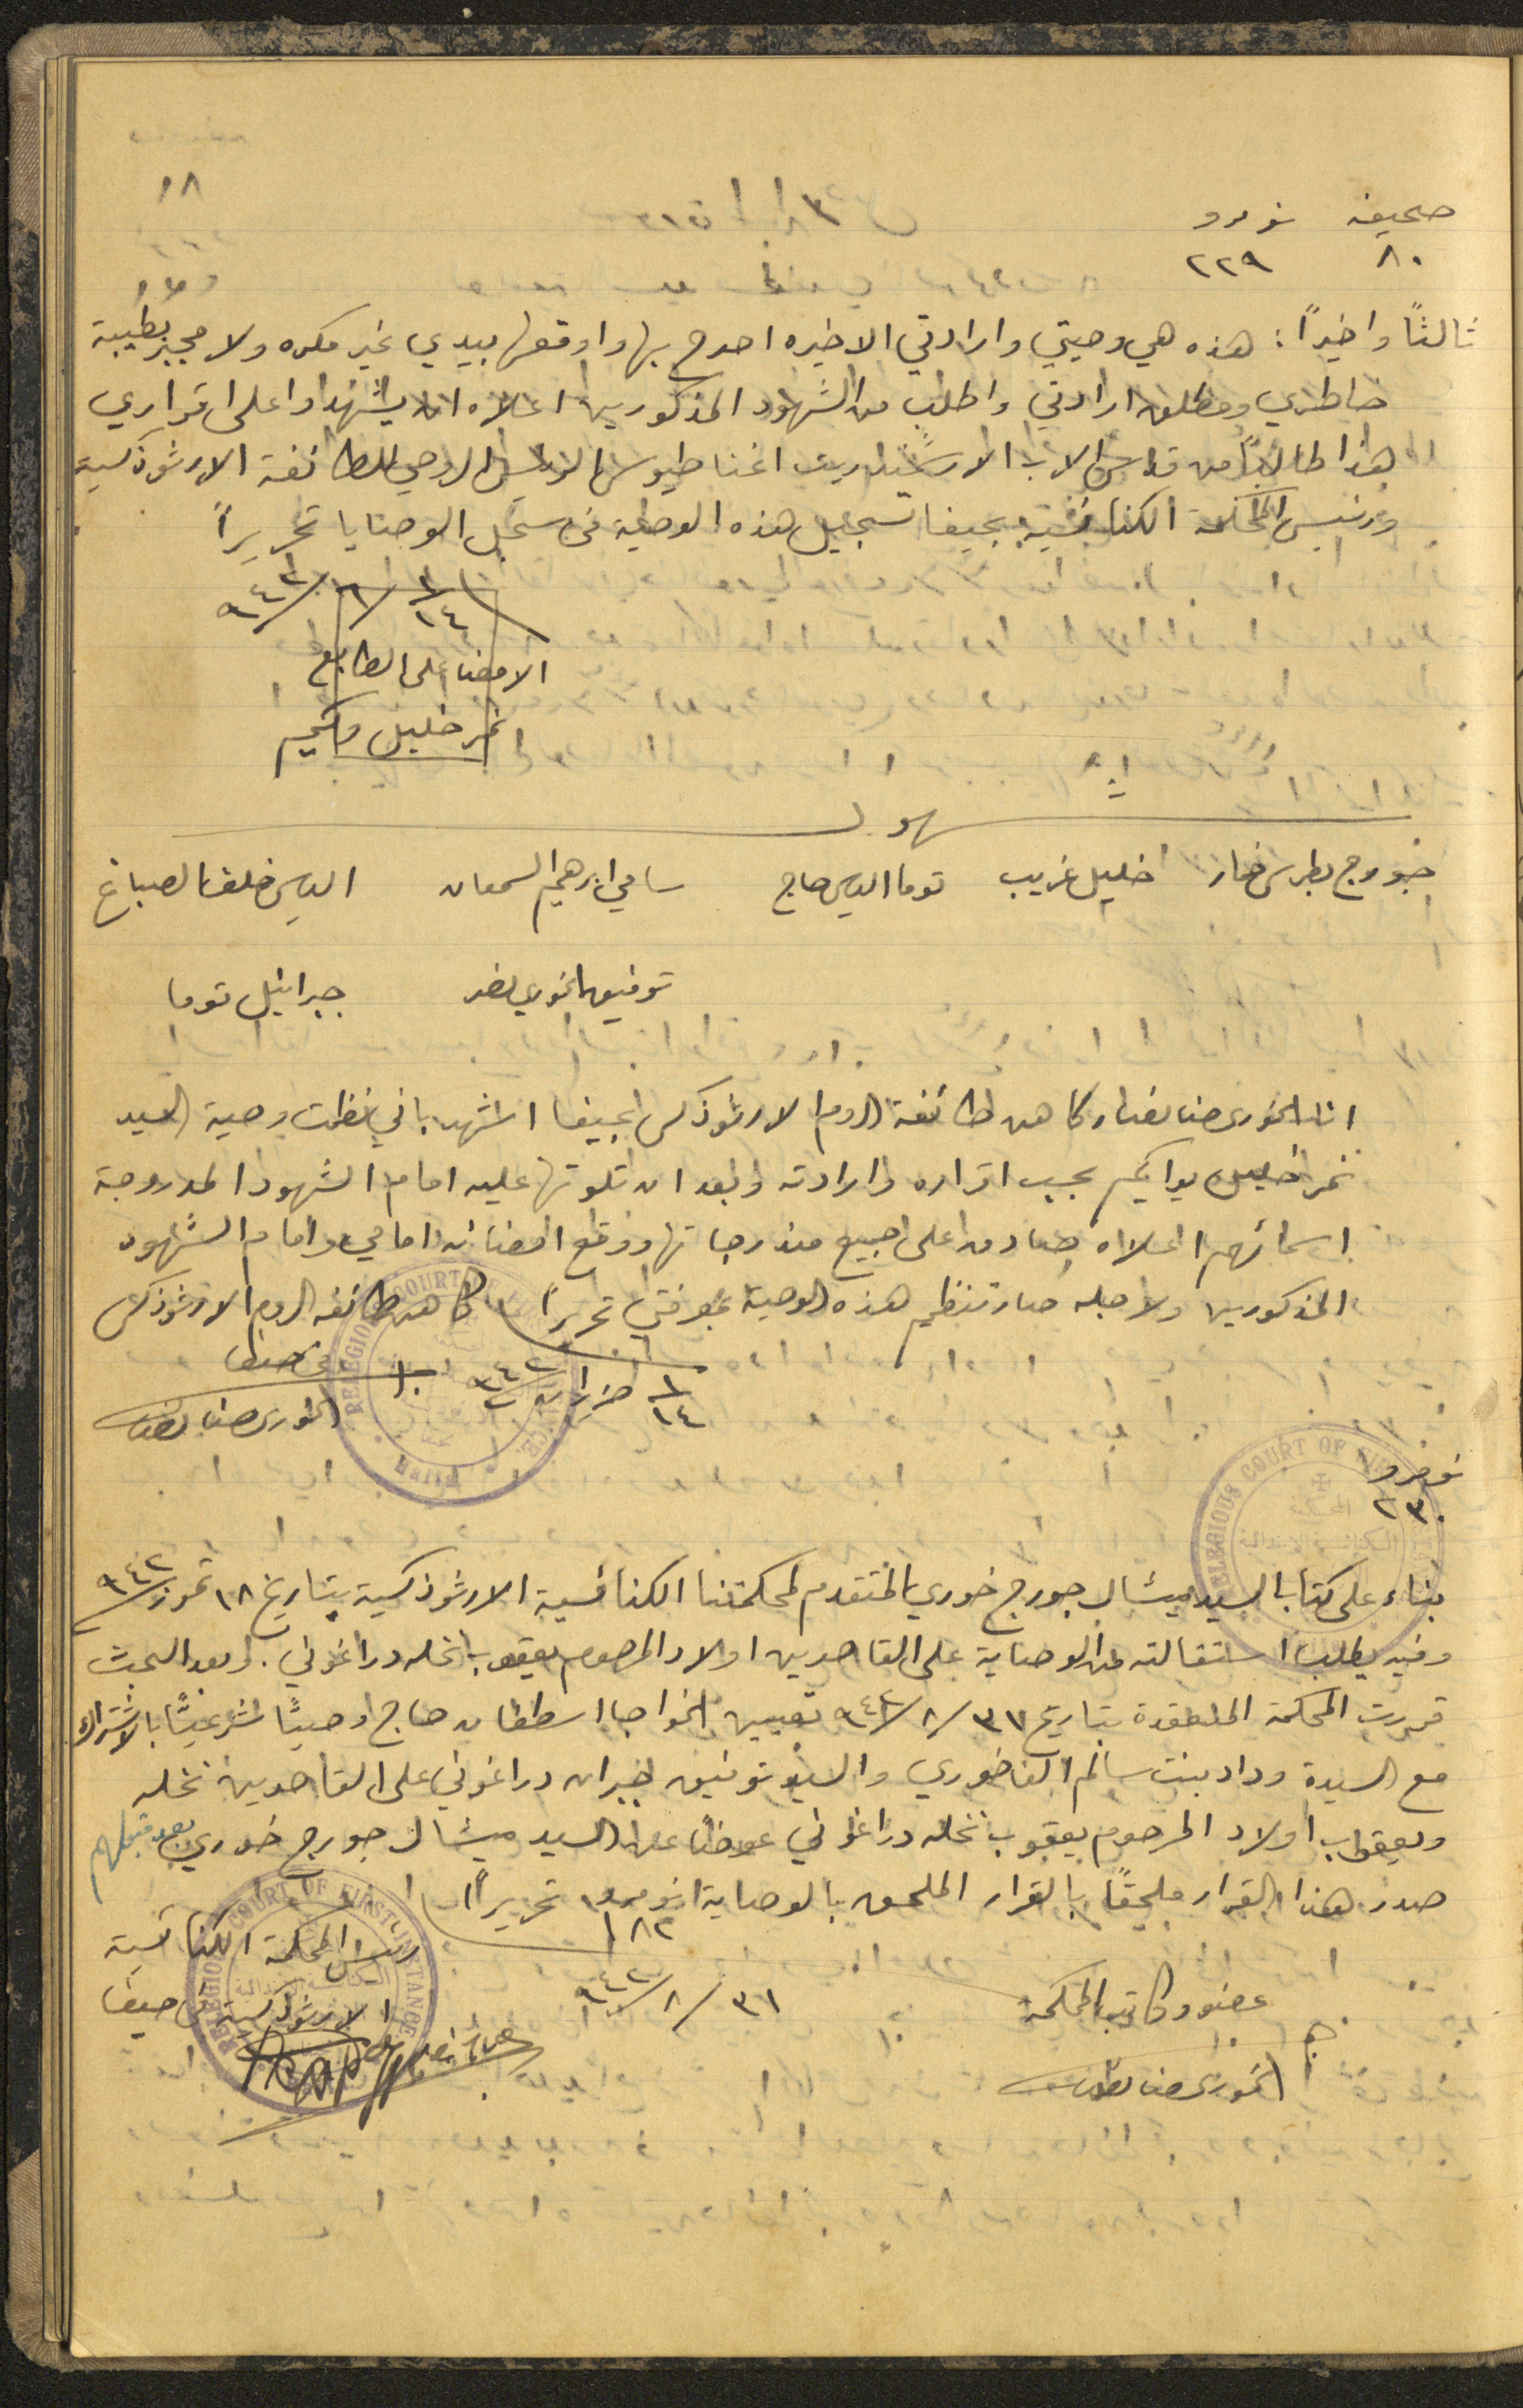 صحيفه نومرو
٨٠ ٢٢٩
ثالثاً واخيراً: هذه هي وصيتي وارادتي الاخيره اصرح بها واوقعها بيدي غير مكره ولا مجبر بطيبة
خاطري ومطلق ارادتي واطلب من الشهود المذكورين اعلاه ان يشهدوا على اقراري
هذا طالباً من قدس الاب الارشمندريت اغناطيوس الرئيس الروحي للطائفة الارثوذكسية
ورئيس المحكمة الكنائسية بحيفا تسجيل هذه الوصية في سجل الوصايا تحريراً
١/١٤ / ٦ / ٩٤٢
الامضا على الطابع
نمر خليل
شهود
جورج بطرس خليل غريب توما الياس حاج سامي ابرهيم السمعان الياس خلف الصباغ
توفيق الخوري نصر جبرائيل توما
انا الخوري حنا كاهن طائفة الروم الارثوذكس بحيفا اشهد باني نظمت وصية السيد
نمر خليل بحسب اقراره وارادته وبعد ان تلوتها عليه امام الشهود المدروجة
اسمائهم اعلاه صادق على جميع مندرجاتها ووقع امضائه امامي وامام الشهود
المذكورين ولاجله صار تنظيم هذه الوصية بمعرفتي تحريراً كاهن طائفه الروم الارثوذكس
١/١٤ حزيران ٩٤٢ في حيفا
الخوري حنا
RELEGIOUS COURT OF FIRST INSTANCE
Haifa
نومرو
٢٣٠
بناء على كتاب السيد ميشال جورج خوري المتقدم لمحكمتنا الكنائسية الارثوذكسية بتاريخ ١٨ تموز ٩٤٢
وفيه يطلب استقالته من الوصاية على القاصرين اولاد المرحوم يعقوب نخله دراغوني. وبعد البحث
قررت المحكمة المنعقدة بتاريخ ٣١/٨/٩٤٢ تعيين الخواجا اسطفان حاج وصياً شرعياً بالاشتراك
مع السيدة وداد بنت سالم الفاخوري والسيد توفيق جبران دراغوني على القاصرين نخله
ويعقوب اولاد المرحوم يعقوب نخله دراغوني عوضاً عن السيد ميشال جورج خوري بعد قبولهم
صدر هذا القرار ملحقاً بالقرار الملحق بالوصاية نومرو ١٨٢ تحريراً
٣١/٨/٩٤٢
رئيس المحكمة الكنائسية
الارثوذكسية في حيفا
عضو وكاتب المحكمة
الخوري حنا
RELEGIOUS COURT OF FIRST INSTANCE